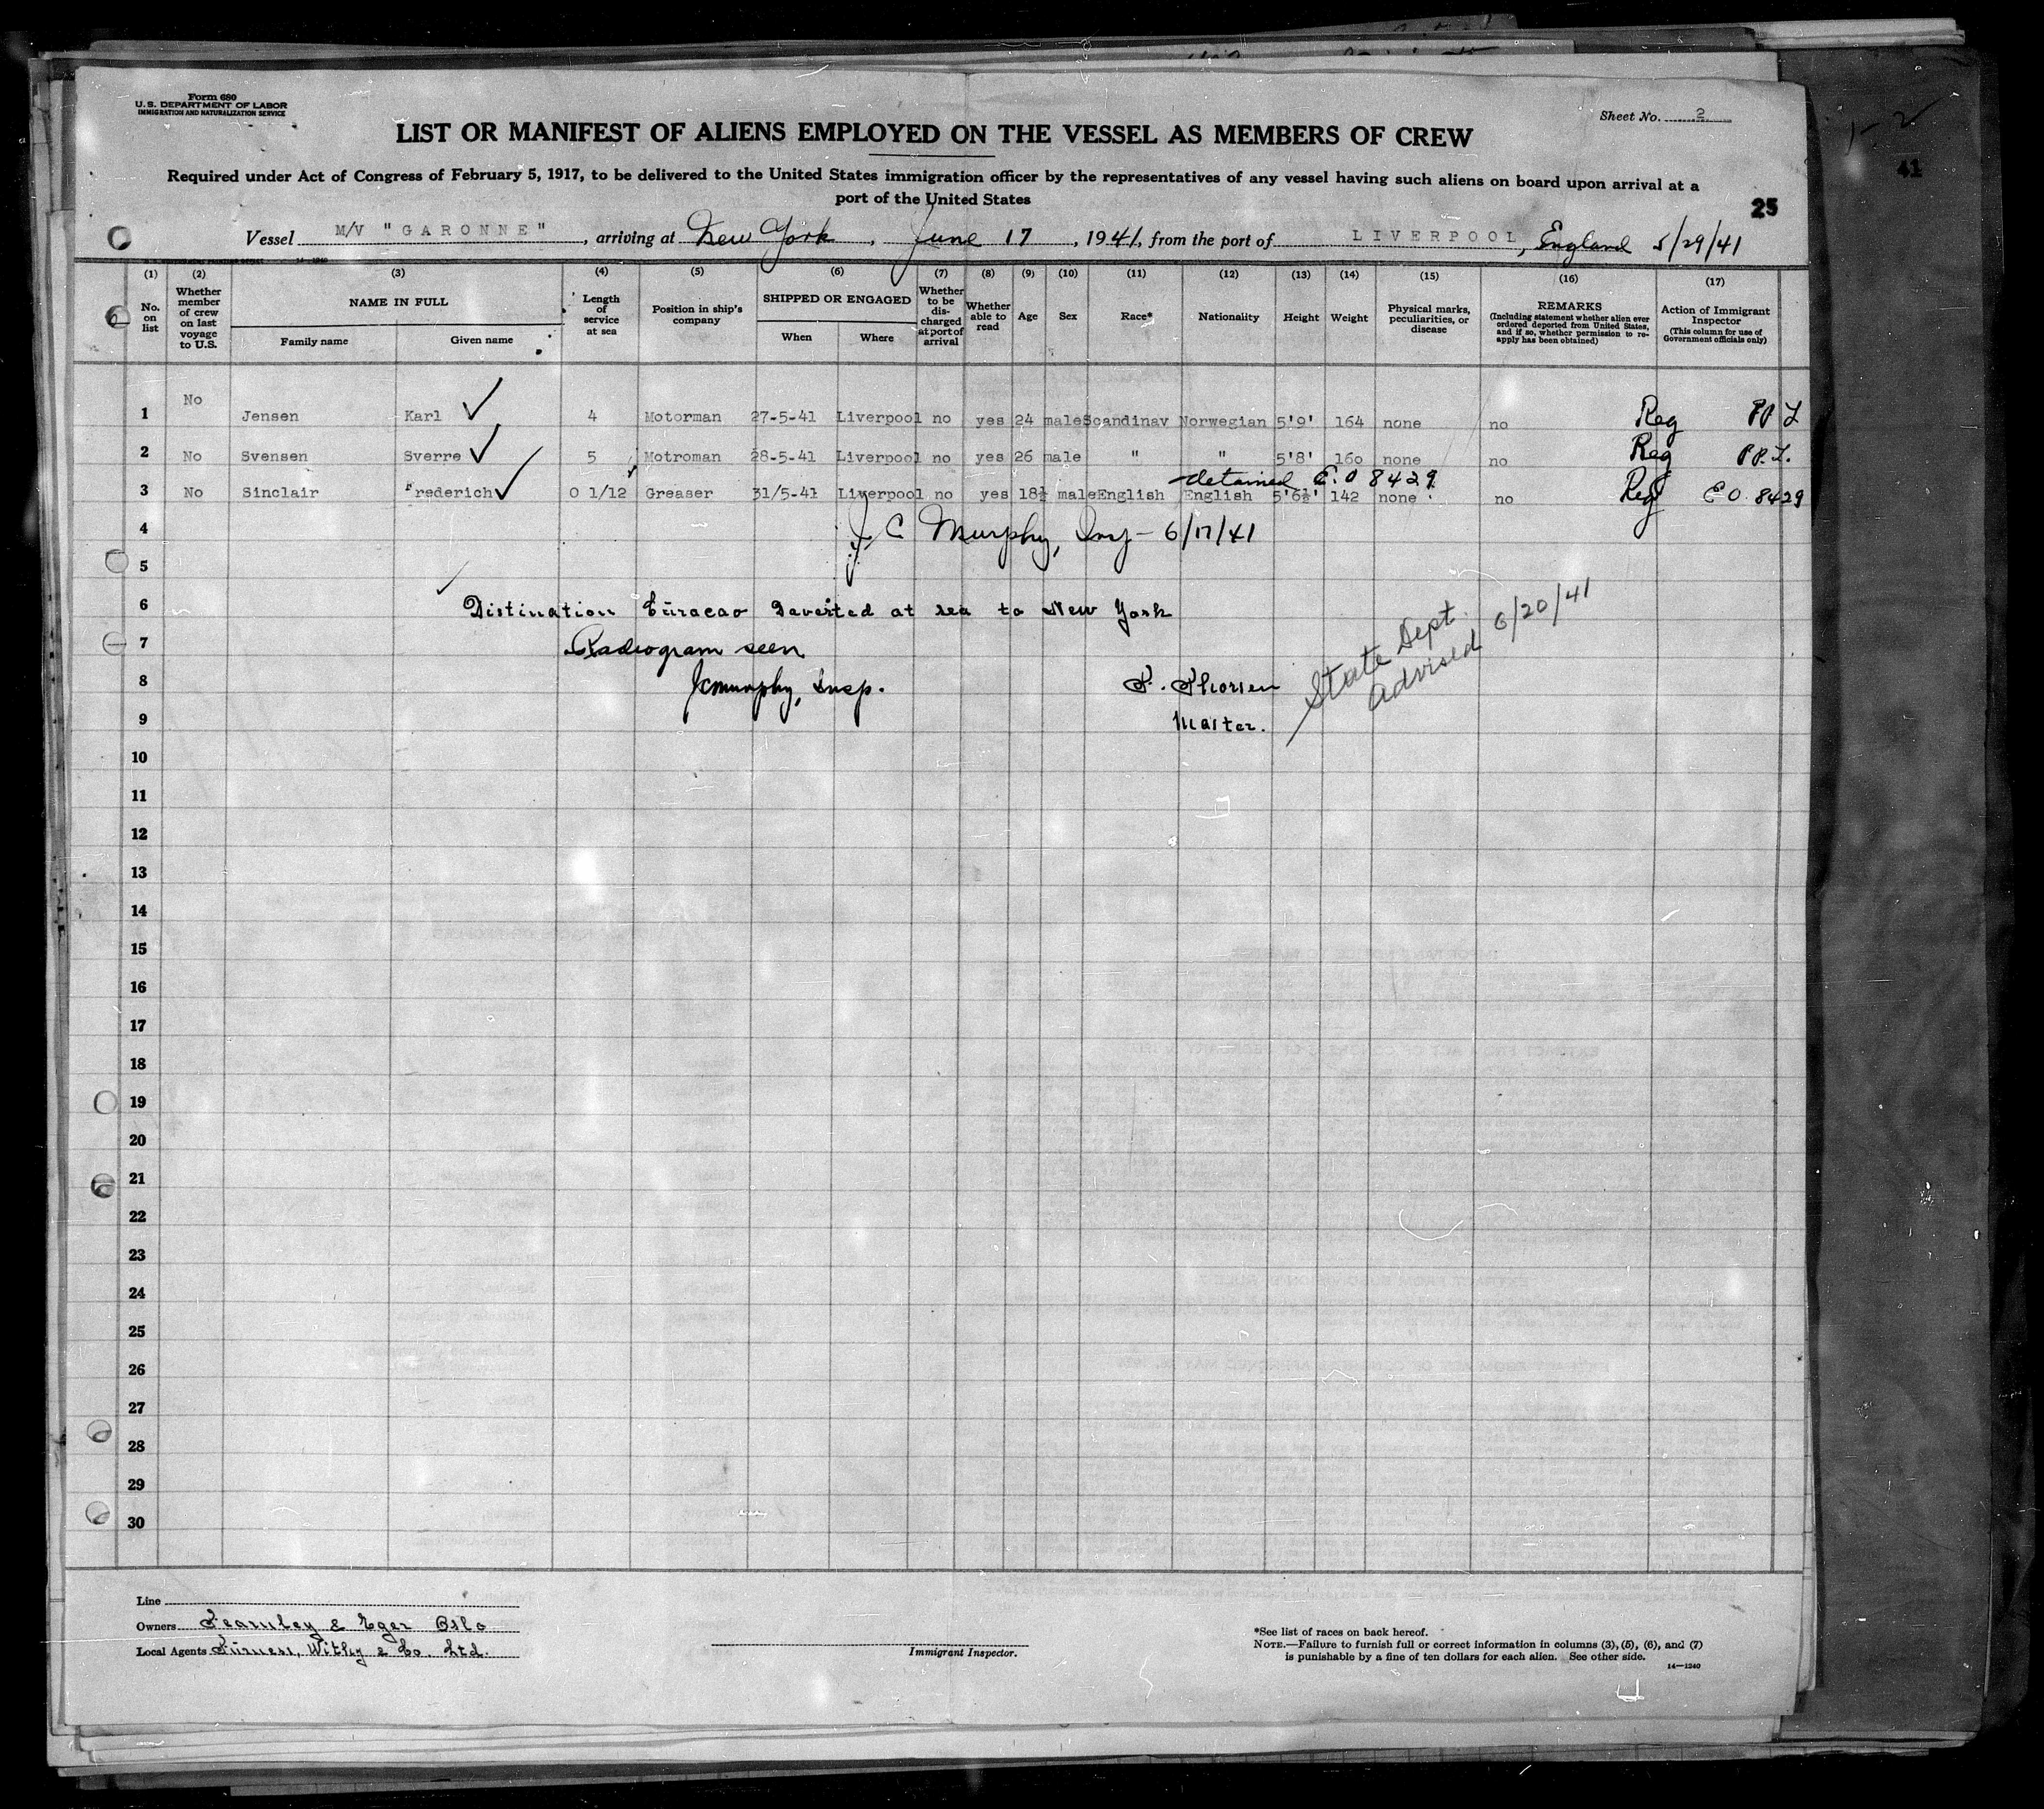 Form 680
U.S. DEPARTMENT OF LABOR
IMMIGRATION AND NATURALIZATION SERVICE
Sheet No. 2
LIST OR MANIFEST OF ALIENS EMPLOYED ON THE VESSEL AS MEMBERS OF CREW
Required under Act of Congress of February 5, 1917, to be delivered to the United States immigration officer by the representatives of any vessel having such aliens on board upon arrival at a
port of the United States
25
41
Vessel M/V "GARONNE", arriving at New York, June 17, 1941, from the port of LIVERPOOL, England 5/29/41
(1) No. on list
(2) Whether member of crew on last voyage to U.S.
(3) NAME IN FULL Family name Given name
(4) Length of service at sea
(5) Position in ship's company
(6) SHIPPED OR ENGAGED When Where
(7) Whether to be discharged at port of arrival
(8) Whether able to read
(9) Age
(10) Sex
(11) Race*
(12) Nationality
(13) Height
(14) Weight
(15) Physical marks, peculiarities, or disease
(16) REMARKS (Including statement whether alien ever ordered deported from United States, and if so, whether permission to reapply has been obtained)
(17) Action of Immigrant Inspector (This column for use of Government officials only)
1 No Jensen Karl 4 Motorman 27-5-41 Liverpool no yes 24 male Scandinav Norwegian 5'9' 164 none no Reg
2 No Svensen Sverre 5 Motroman 28-5-41 Liverpool no yes 26 male " " 5'8' 160 none no Reg
detained E.O 8429
3 No Sinclair Frederich 0 1/12 Greaser 31/5-41 Liverpool no yes 18½ male English English 5'6½' 142 none no Reg E O 8429
4 J. C Murphy, Insp - 6/17/41
5
6 Distination Curacao Daverted at sea to New York
7 Radiogram seen
8 JCMurphy, Insp. P. Thorsen
State Dept. advised 6/20/41
9 Master.
10
11
12
13
14
15
16
17
18
19
20
21
22
23
24
25
26
27
28
29
30
Line
Owners Fearnley & Eger Oslo
Local Agents Furness, Withy & Co. Ltd.
Immigrant Inspector.
*See list of races on back hereof.
NOTE.—Failure to furnish full or correct information in columns (3), (5), (6), and (7)
is punishable by a fine of ten dollars for each alien. See other side.
14—1240